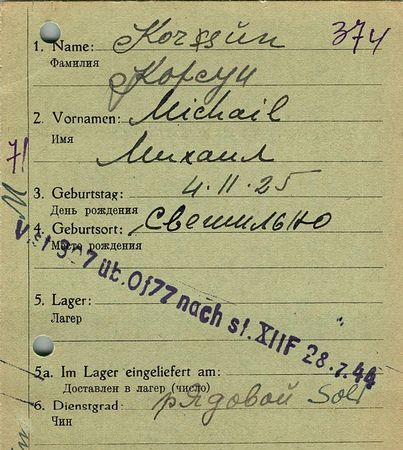 1. Name: Korssun 374
Фамилия
Корсун
2. Vornamen: Michail
Имя
Михаил
71
3. Geburtstag: 4.11.25
День рождения
4. Geburtsort:
Место рождения
307 üb. Of77 nach St. XIIF 28.7.44
5. Lager:
Лагерь
5a. Im Lager eingeliefert am:
Доставлен в лагерь (число)
6. Dienstgrad: рядовой Sold
Чин